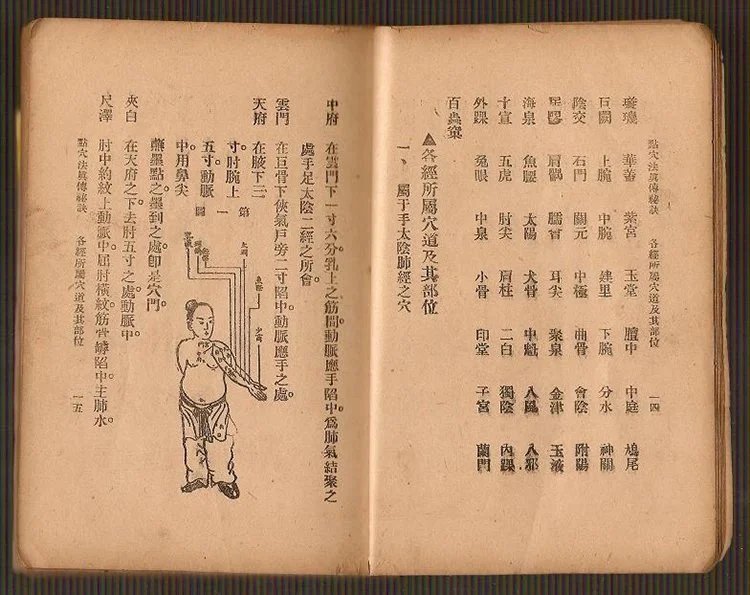 點穴法真傳秘訣 各經所屬穴道及其部位 一四
璇璣 華蓋 紫宮 玉堂 膻中 中庭 鳩尾
巨闕 上腕 中腕 建里 下腕 分水 神闕
陰交 石門 關元 中極 曲骨 會陰 附陽
肩髃 耳尖 聚泉 金津 玉液
海泉 魚腰 太陽 犬骨 中魁 八風 八邪
十宣 五虎 肘尖 肩柱 二白 獨陰 內踝
外踝 兔眼 中泉 小骨 印堂 子宮 蘭門
百蟲窠
▲各經所屬穴道及其部位
一、屬于手太陰肺經之穴
中府 在雲門下一寸六分。乳上之筋間。動脈應手陷中。為肺氣結聚之
處。手足太陰二經之所會。
雲門 在巨骨下俠氣戶旁二寸陷中。動脈應手之處。
天府 在腋下三
寸。肘腕上
五寸。動脈
中。用鼻尖
蘸墨點之。墨到之處。卽是穴門。
夾白 在天府之下。去肘五寸之處。動脈中。
尺澤 肘中約紋上。動脈中。屈肘橫紋筋骨罅陷中。主肺水
點穴法真傳秘訣 各經所屬穴道及其部位 一五
第一圖
太淵
魚際
少商